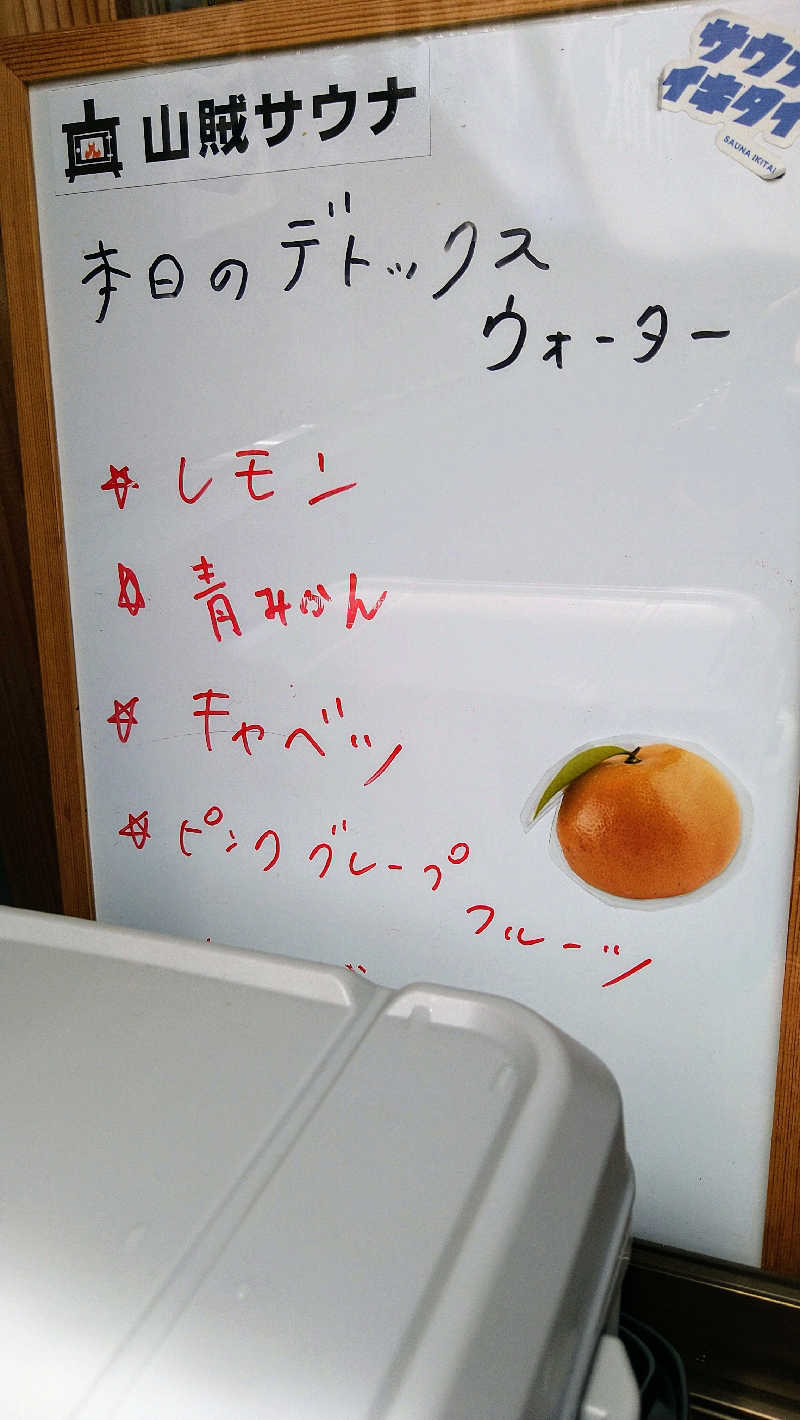 山賊サウナ
サウナ
イキタイ
SAUNA IKITAI
本日のデトックス
ウォーター
☆ レモン
☆ 青みかん
☆ キャベツ
☆ ピンクグレープ
フルーツ